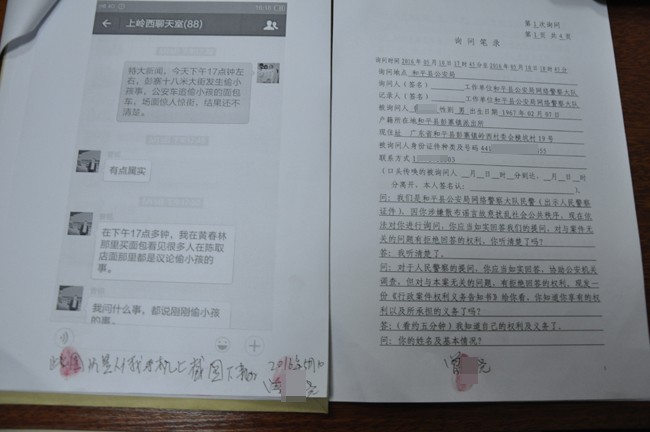 上岭西聊天室(88)
特大新闻,今天下午17点钟左
右,彭寨十八米大街发生偷小
孩事,公安车追偷小孩的面包
车,场面惊人惊街,结果还不
清楚。
有点属实
在下午17点多钟,我在黄春林
那里买面包看见很多人在陈取
店面那里都是议论偷小孩的
事。
我问什么事,都说刚刚偷小孩
的事。
此图片是从我手机上截图下来的
第1次询问
第1页 共4页
询问笔录
询问地点 和平县公安局
询问人(签名) 工作单位和平县公安局网络警察大队
记录人(签名) 工作单位和平县公安局网络警察大队
被询问人 性别 男 出生日期 1967年02月07日
户籍所在地和平县彭寨镇派出所
现住址 广东省和平县彭寨镇岭西村委会横坑村19号
被询问人身份证件种类及号码 441
联系方式 1
(口头传唤的被询问人 月 日 时 分到达, 月 日 时
分离开,本人签名确认: )。
问:我们是和平县公安局网络警察大队民警(出示人民警察
证件),因你涉嫌散布谣言故意扰乱社会公共秩序,现在依
法对你进行询问,你应当如实回答我们的提问,对与案件无
关的问题有拒绝回答的权利。你听清楚了吗?
答:我听清楚了。
问:对于人民警察的提问,你应当如实回答、协助公安机关
调查,但对与本案无关的问题,有拒绝回答的权利,现发一
份《行政案件权利义务告知书》给你看。你知道你享有的权
利以及所承担的义务了吗?
答:(看约五分钟)我知道自己的权利及义务了。
问:你的姓名及基本情况?